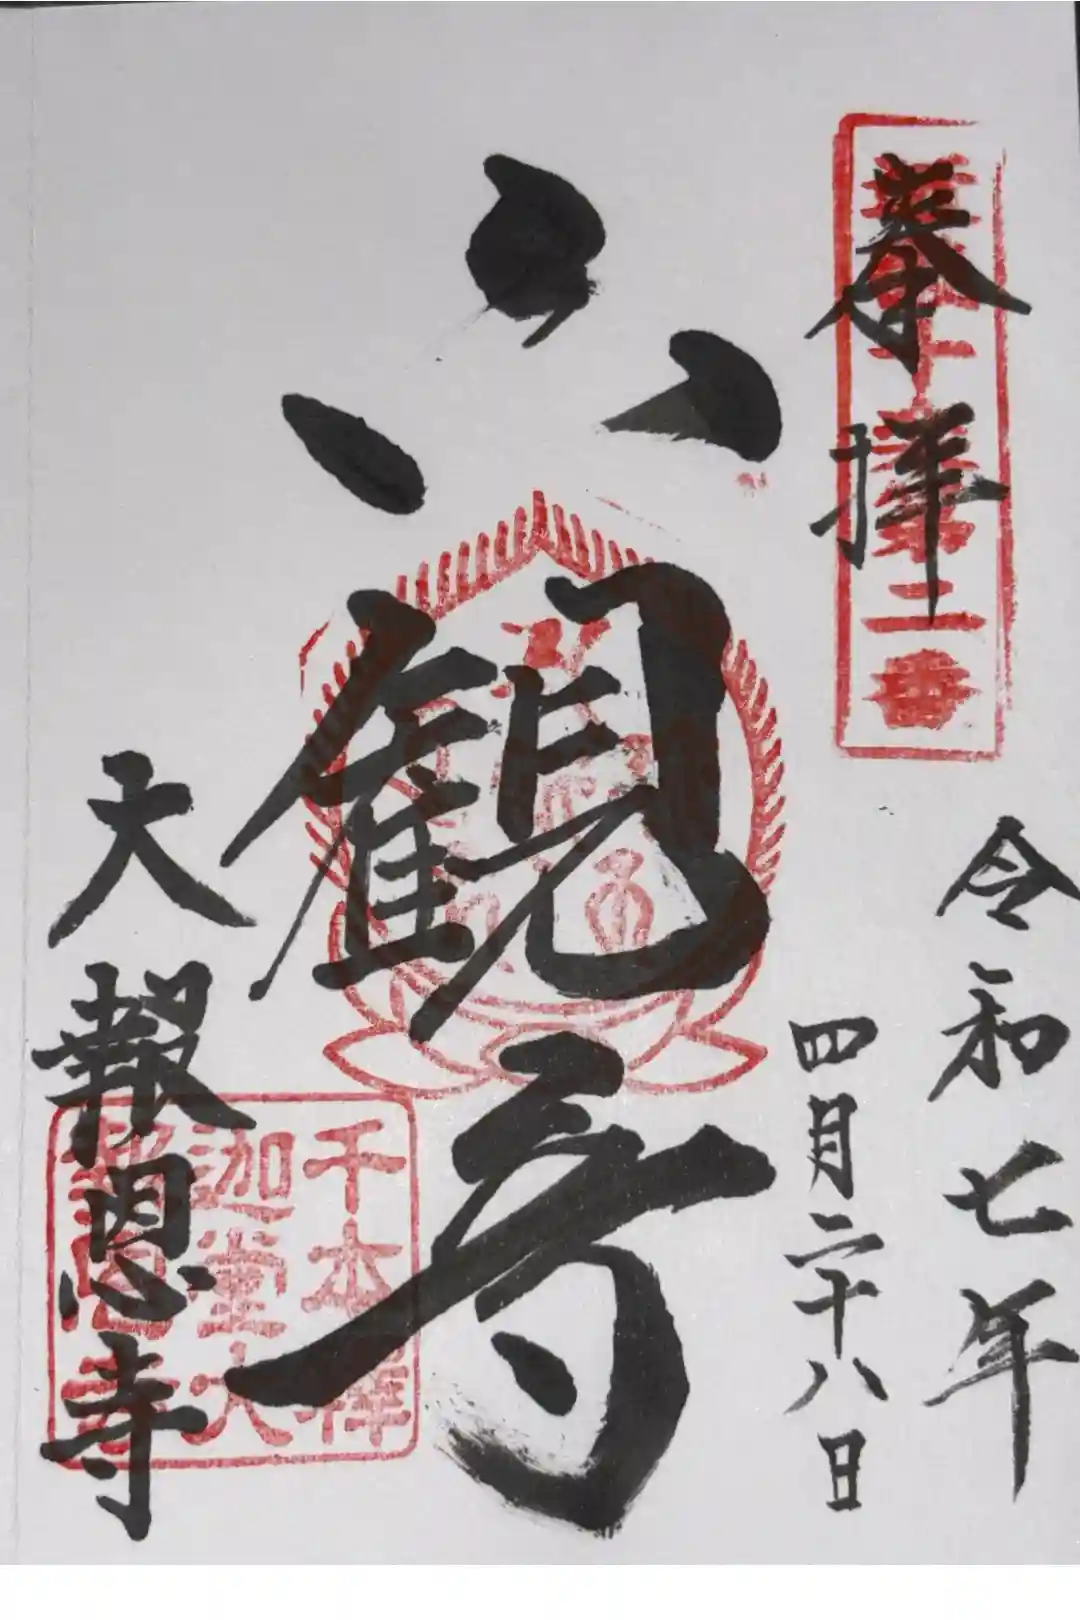 奉拝
二番
令和七年
四月二十八日
六観音
大報恩寺
千本釋
迦堂大
報恩寺